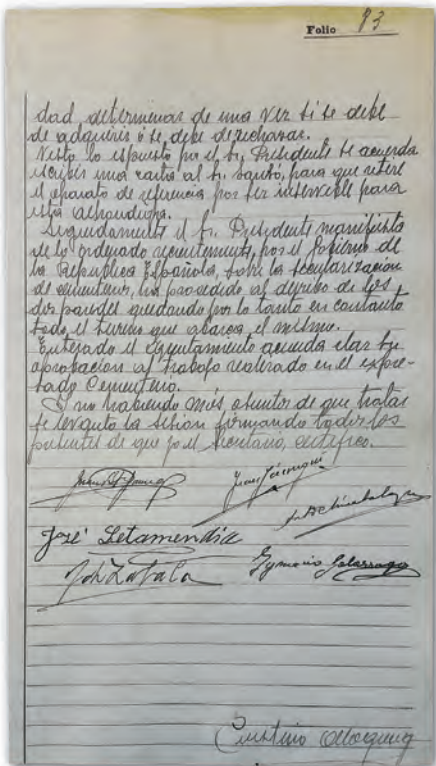 Folio 83
dad, determinar de una vez si se debe
de adquirir ó se debe de rechasar.
Visto lo espuesto por el Sr. Presidente se acuerda
escribir una carta al Sr. Santó, para que retire
el aparato de referencia por ser inservible para
esta alhondiga.
Seguidamente el Sr. Presidente manifiesta
de lo ordenado recientemente, por el Gobierno de
la Republica Española, sobre la secularizacion
de cementerios, ha procedido al derribo de los
dos paredes quedando por lo tanto en contacto
todo el terreno que abarca el mismo.
Enterado el Ayuntamiento acuerda dar su
aprobacion al trabajo realizado en el expre-
sado Cementerio.
Y no habiendo más asuntos de que tratar
se levantó la sesion firmando todos los
presentes de que yo el secretario, certifico.
José Letamendia
José Zabala
Ygnacio Galarraga